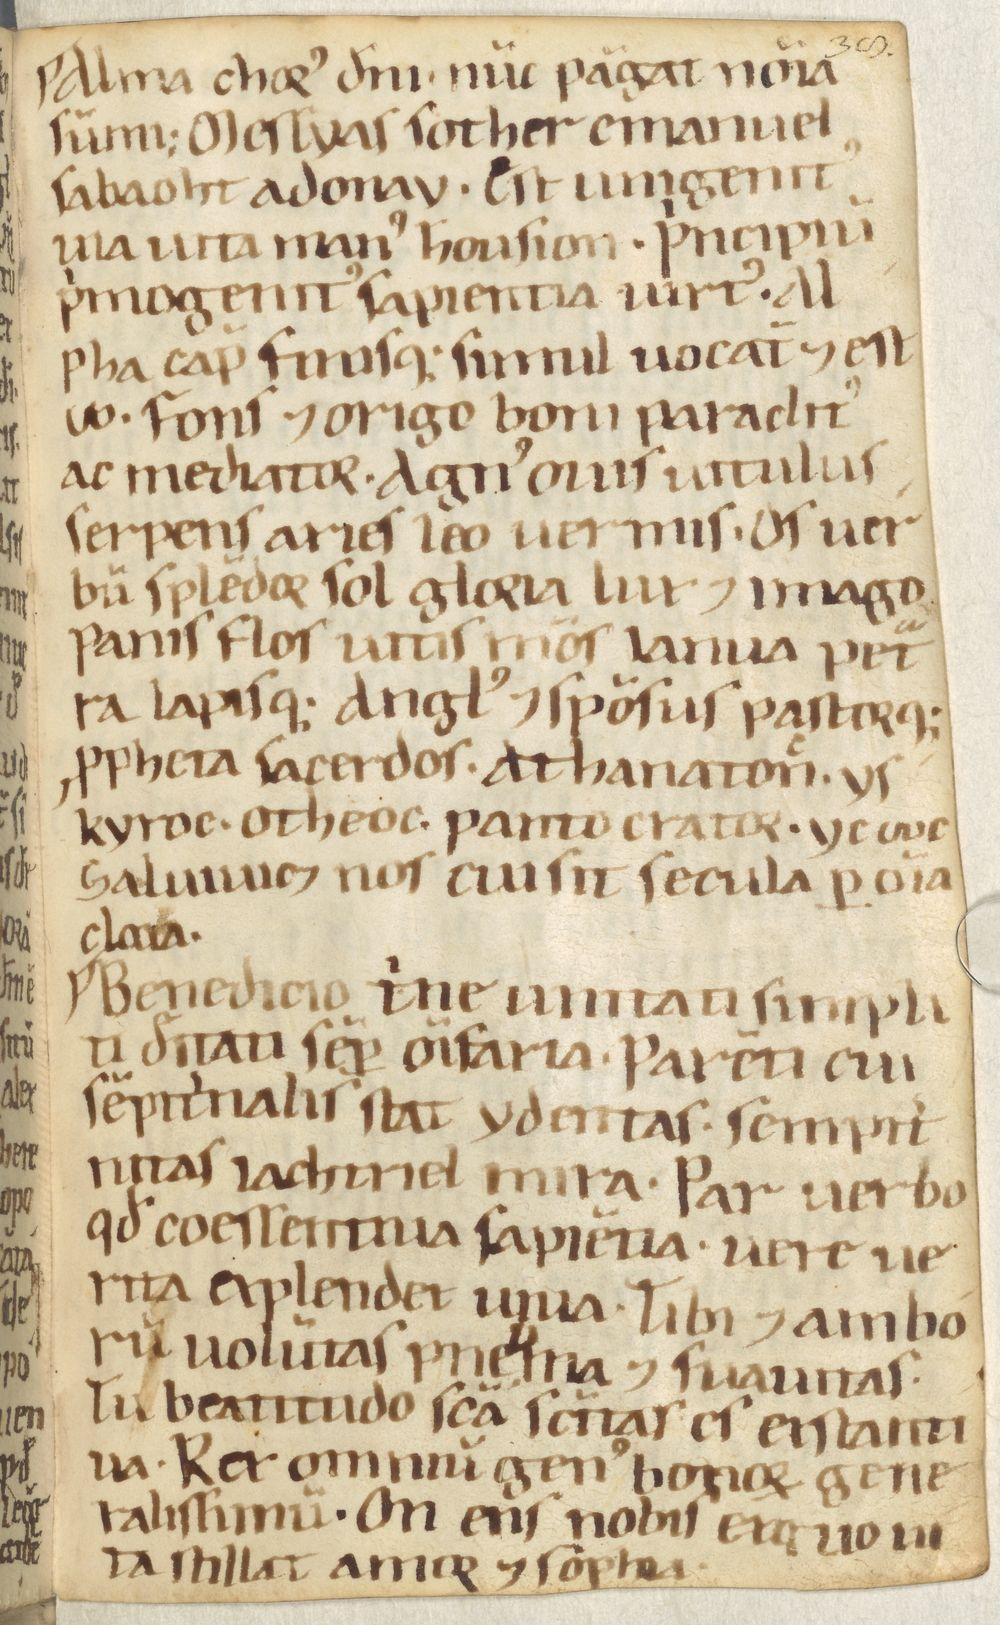 38.
Alma chorꝰ dñi. nūc pāgat nōīa
sūmi; Messyas sother emanuel
sabaoht adonay. Est unigenitꝰ
uia uita manꝰ housion. pͥncipiū
pͥmogenitꝰ sapientia uirtꝰ. Al
pha cap̄ finisq; simul uocat̄ ⁊ est
ω. Fons ⁊ origo boni paraclitꝰ
ac mediator. Agnꝰ ouis uitulus
serpens aries leo uermis. Os uer
bū splēdor sol gloria lux ⁊ imago
Panis flos uitis mōs ianua pet
ra lapisq; Anglꝰ ⁊ spōsus pastorq;
ꝓpheta sacerdos. Athanaton. ys
kyroc. otheoc. pantocrator. yc
Saluiuic⁊ nos cui sit secula p̱ oīa
gloria.
Benedicio tͥne unitati simpli
ti dͥitati sēp̱ oīfaria. Parēti cui
sēpitͥnalis stat ydentitas. sempitͥ
nitas iachtriel mira. Par uerbo
qđ coessentiua sapiētia. uere ue
rita explendet uiua. Tibi ⁊ ambo
rū uolūtas pneuma ⁊ suauitas.
Tu beatitudo scā scītas es exstanti
ua. Rex omniū genꝰ bonor gene
ralissimū. On ens nobis ex quo ui
ta stillat amor ⁊ sophia.